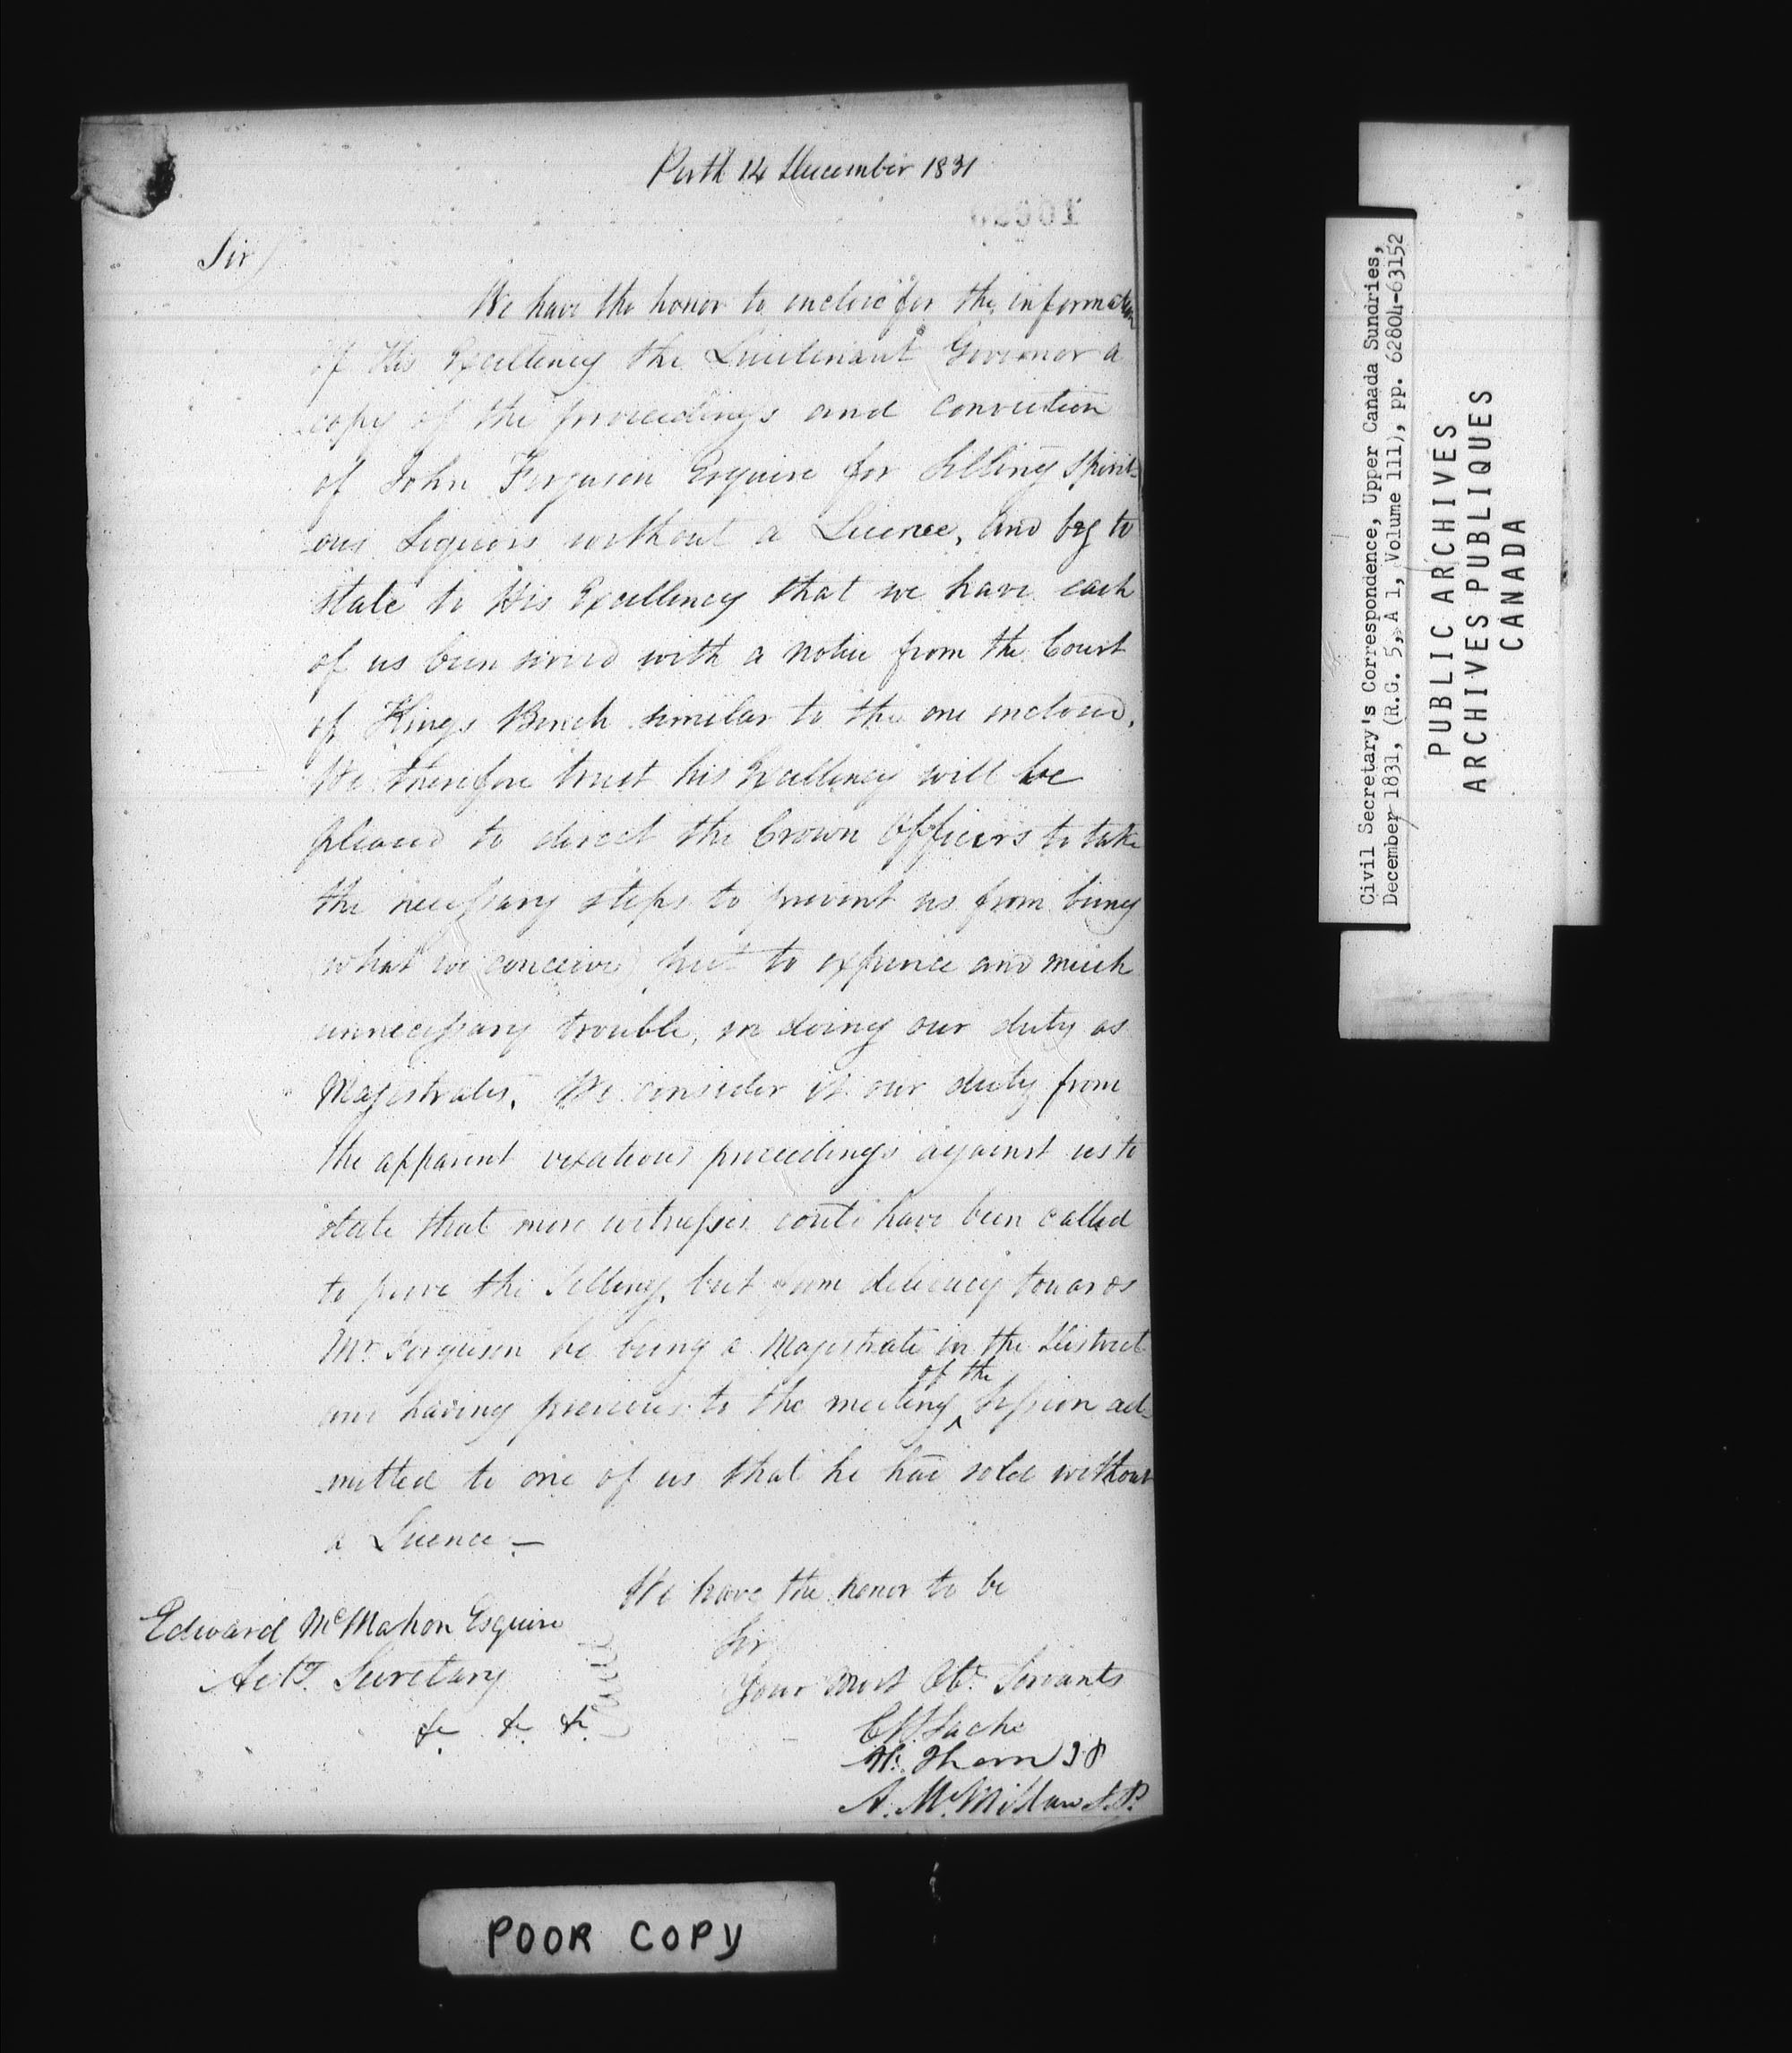 Perth 14 December 1831
Sir/
We have the honor to enclose for the information
of His Excellency the Lieutenant Governor a
copy of the proceedings and conviction
of John Ferguson Esquire for Selling Spirit-
ous Liquors without a Licence, and beg to
state to His Excellency that we have each
of us been served with a notice from the Court
of Kings Bench similar to the one inclosed.
We therefore trust his Excellency will be
pleased to direct the Crown Officers to take
the necessary steps to prevent us from being
(what we conceive) put to expence and much
unnecessary trouble, in doing our duty as
Magistrates. We consider it our duty from
the apparent vexatious proceedings against us to
state that more witnesses could have been called
to prove the Selling, but from delicacy towards
Mr Ferguson he being a Magistrate in the District
of the
and having previous to the meeting ^ Session ad-
mitted to one of us that he had sold without
a Licence —
We have the honor to be
Sir
Your Most Obt. Servants
Edward McMahon Esquire
Actg. Secretary
&c &c &c
A. McMillan J.P.
Thom JP
POOR COPY
Civil Secretary's Correspondence, Upper Canada Sundries,
December 1831, (R.G. 5, A 1, Volume 111), pp. 62804-63152
PUBLIC ARCHIVES
ARCHIVES PUBLIQUES
CANADA